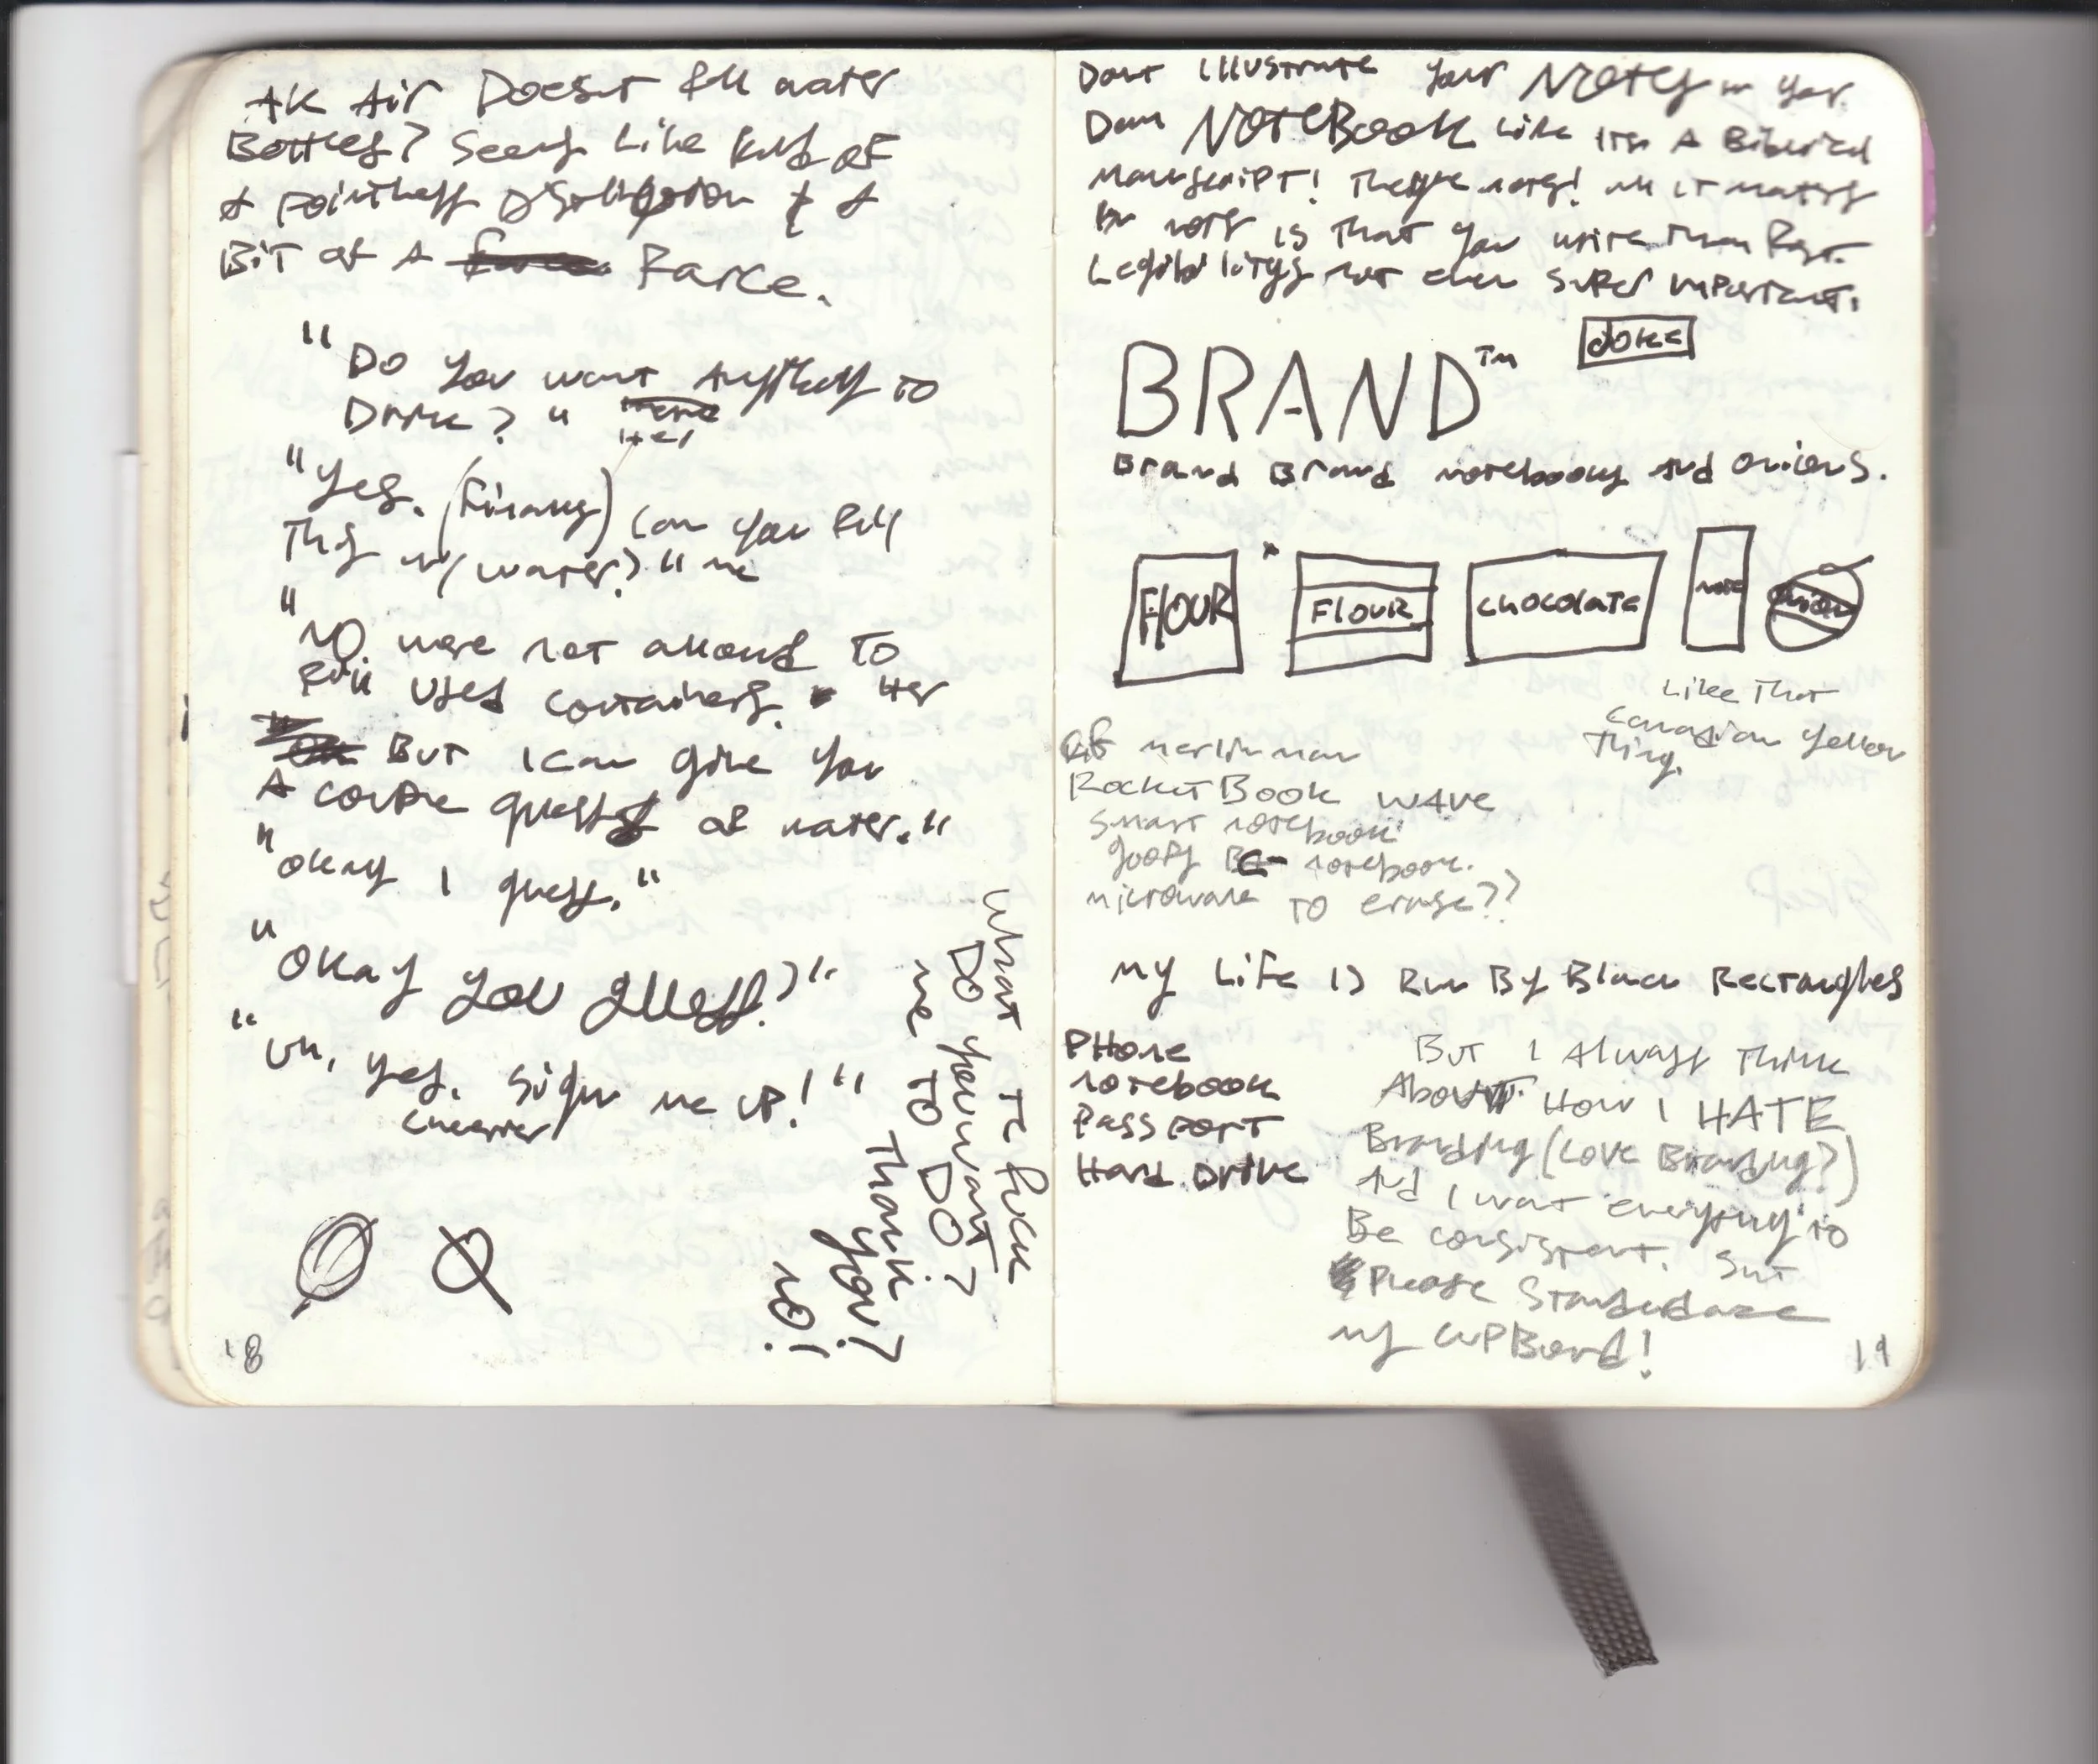 AK Air Doesnt fill water
Bottles? Seems Like kind of
a pointless
Bit of a Farce.
"Do you want anything to
Drink?"
Her
"Yes. (Finally) can you fill
this w/ water?" me
"NO were not allowed to
fill used containers. Her
But I can give you
A couple of water."
"okay I guess."
"Okay you guess?"
"Uh, yes. Sign me up!"
What the fuck
Do you want
me TO DO?
Thank
you?
no!
18
Dont illustrate your NOTES in your
Damn NOTEBOOK Like its A Biblical
manuscript! They're notes! All it matters
for notes is that you write them fast.
Legibilitys not even super important.
JOKE
BRAND™
Brand Brand notebooks and onions.
FLOUR
FLOUR
CHOCOLATE
note
onion
Like That
canadian yellow
Thing.
merlin man
Rocket Book WAVE
smart notebook
goofy notebook.
microwave TO erase??
my Life is Run By Black Rectangles
PHone
notebook
Passport
Hard Drive
But I Always Think
About How I HATE
Branding (Love Branding?)
And I want everything to
Be consistent.
Please Standardaze
my CupBord!
19